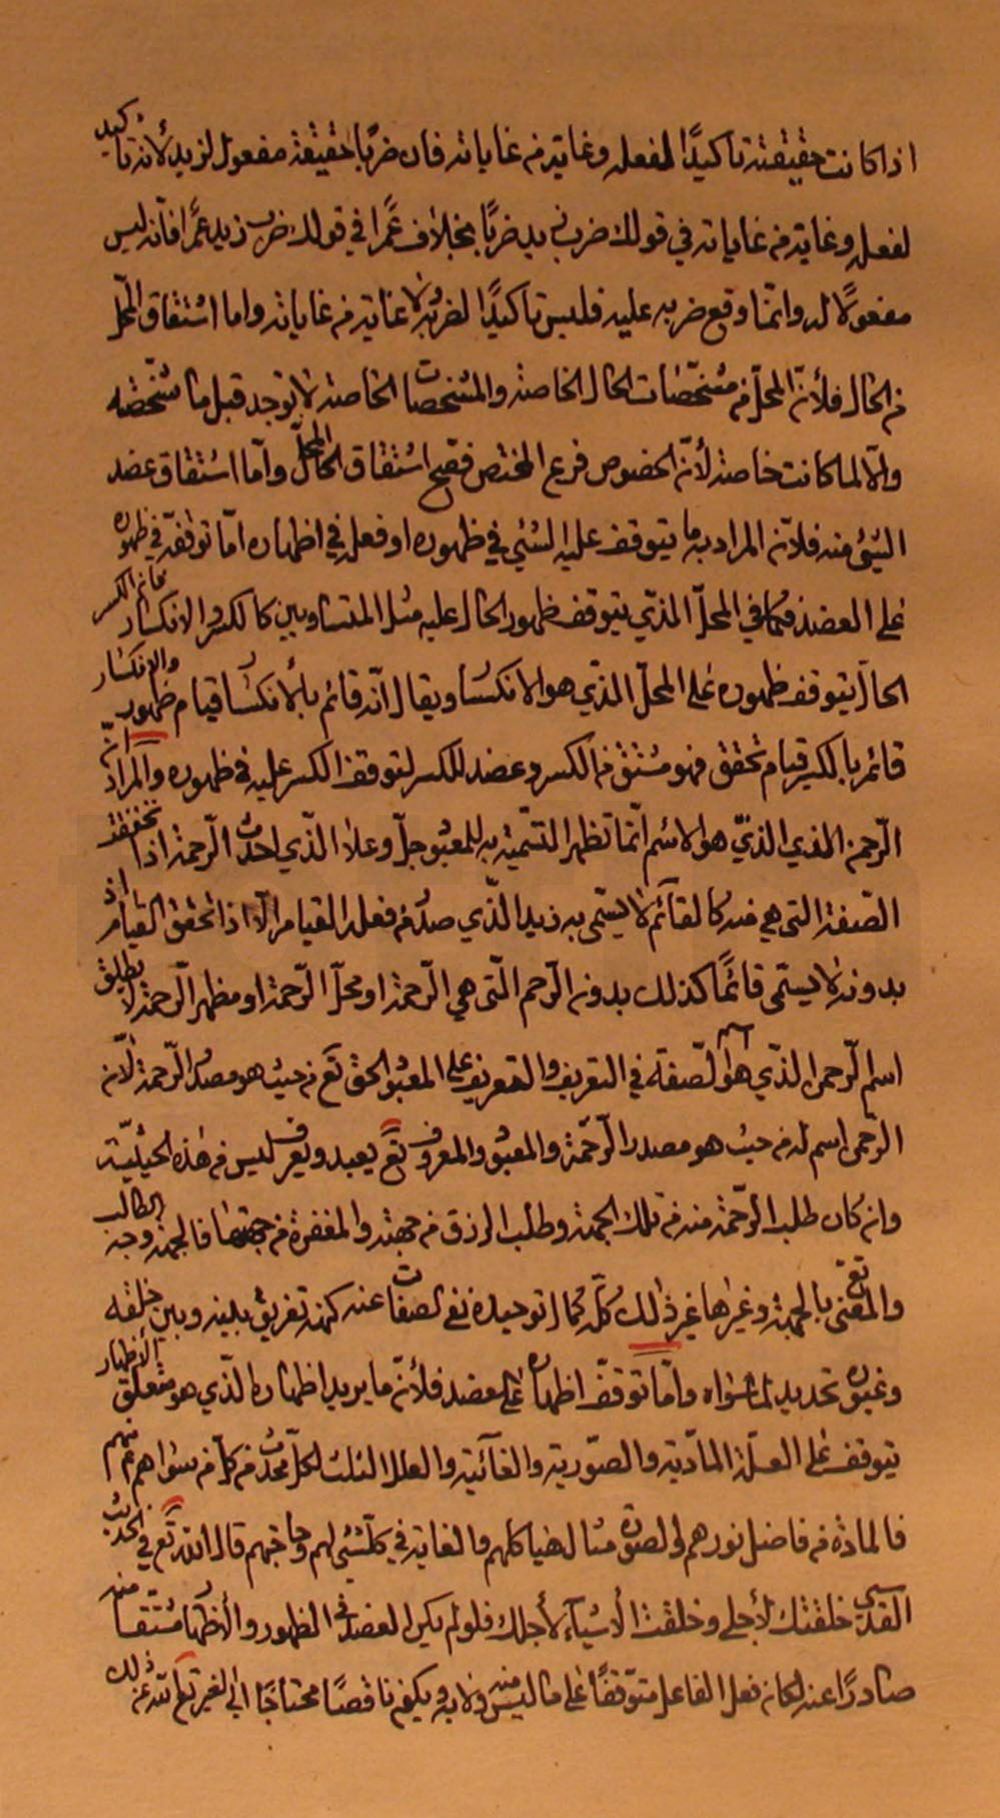 اذا كانت حقيقته تاكيدًا لفعله وغاية من غاياته فان ضربًا حقيقة مفعول لزيد لأنه تأكيد
لفعله وغاية من غاياته في قولك ضرب زيد ضربًا بخلاف عمرًا في قولك ضرب زيد عمرًا فانه ليس
مفعولًا له وانما وقع ضربه عليه فليس تاكيدًا لضربه ولا غاية من غاياته واما اشتقاق المحل
من الحال فلأن المحل من مشخّصات الحال الخاصة والمشخصات الخاصة لا توجد قبل ما تشخّصه
والّا لما كانت خاصة لأنّ الخصوص فرع المختص فصح اشتقاق المحلّ الحال وامّا اشتقاق عضد
الشيء منه فلانّ المراد به ما يتوقف عليه الشيء في ظهوره او فعله في اظهاره امّا توقفه في ظهوره
على العضد فكما في المحلّ الذي يتوقف ظهور الحال عليه مثل المتساوبين كالكسر والانكسار فان الكسر
الحال يتوقف ظهوره على المحلّ الذي هو الانكسار ويقال انّه قائم بالأنكسار قيام ظهور والانكسار
قائم بالكسر قيام تحقق فهو مشتق من الكسر وعضد للكسر لتوقف الكسر عليه في ظهوره والمراد انّ
الرّحمن الذي هو الاسم انّما تظهر التسمية به للمعبود جلّ وعلا الّذي احدث الرّحمة اذا تحققت
الصّفة التي هي منه كالقائم لا يسمّى به زيد الّذي صدر عن فعله القيام الّا اذا تحقق القيام اذ
بدونه لا يسمّى قائمًا كذلك بدون الرّحم الّتي هي الرّحمة او محلّ الرّحمة او مظهر الرّحمة لا يطلق
اسم الرّحمن الّذي هو اسم لصفته في التعريف والتعرف على المعبود الحق تع من حيث هو مصدر الرّحمة لانّ
الرّحمن اسم له من حيث هو مصدر الرّحمة والمعبود والمعروف تع يعبد ويعرف ليس من هذه الحيثيّة
وان كان طلب الرّحمة منه من تلك الجهة وطلب الرزق من جهته والمغفرة من جهتها فالجهة وجه الطالب
والمعنى تع بالجهة وغيرها غير ذلك كلّه كمال توحيده نفي الصفات عنه كنهه تفريق بينه وبين خلقه
وغيوره تحديد لما سواه وامّا توقف اظهاره على العضد فلأنّ ما يريد اظهاره الّذي هو متعلّق الأظهار
يتوقف على العلّة المادّية والصّورية والغآئية والعلل الثلث لكلّ محدث من كلّ من سواهم عنهم
فالمادّة من فاضل نورهم والصورة مثال هياكلهم والغاية في كلّ شيء لهم وحاجتهم قال الله تع في الحديث
القدسي خلقتك لأجلي وخلقت الأشيآء لأجلك فلو لم يكن العضد في الظهور والأظهار مشتقا منه
صادرًا عنه لكان فعل الفاعل متوقفًا على ما ليس منه ولا به ويكون ناقصًا محتاجًا الى الغير تع الله عن ذلك